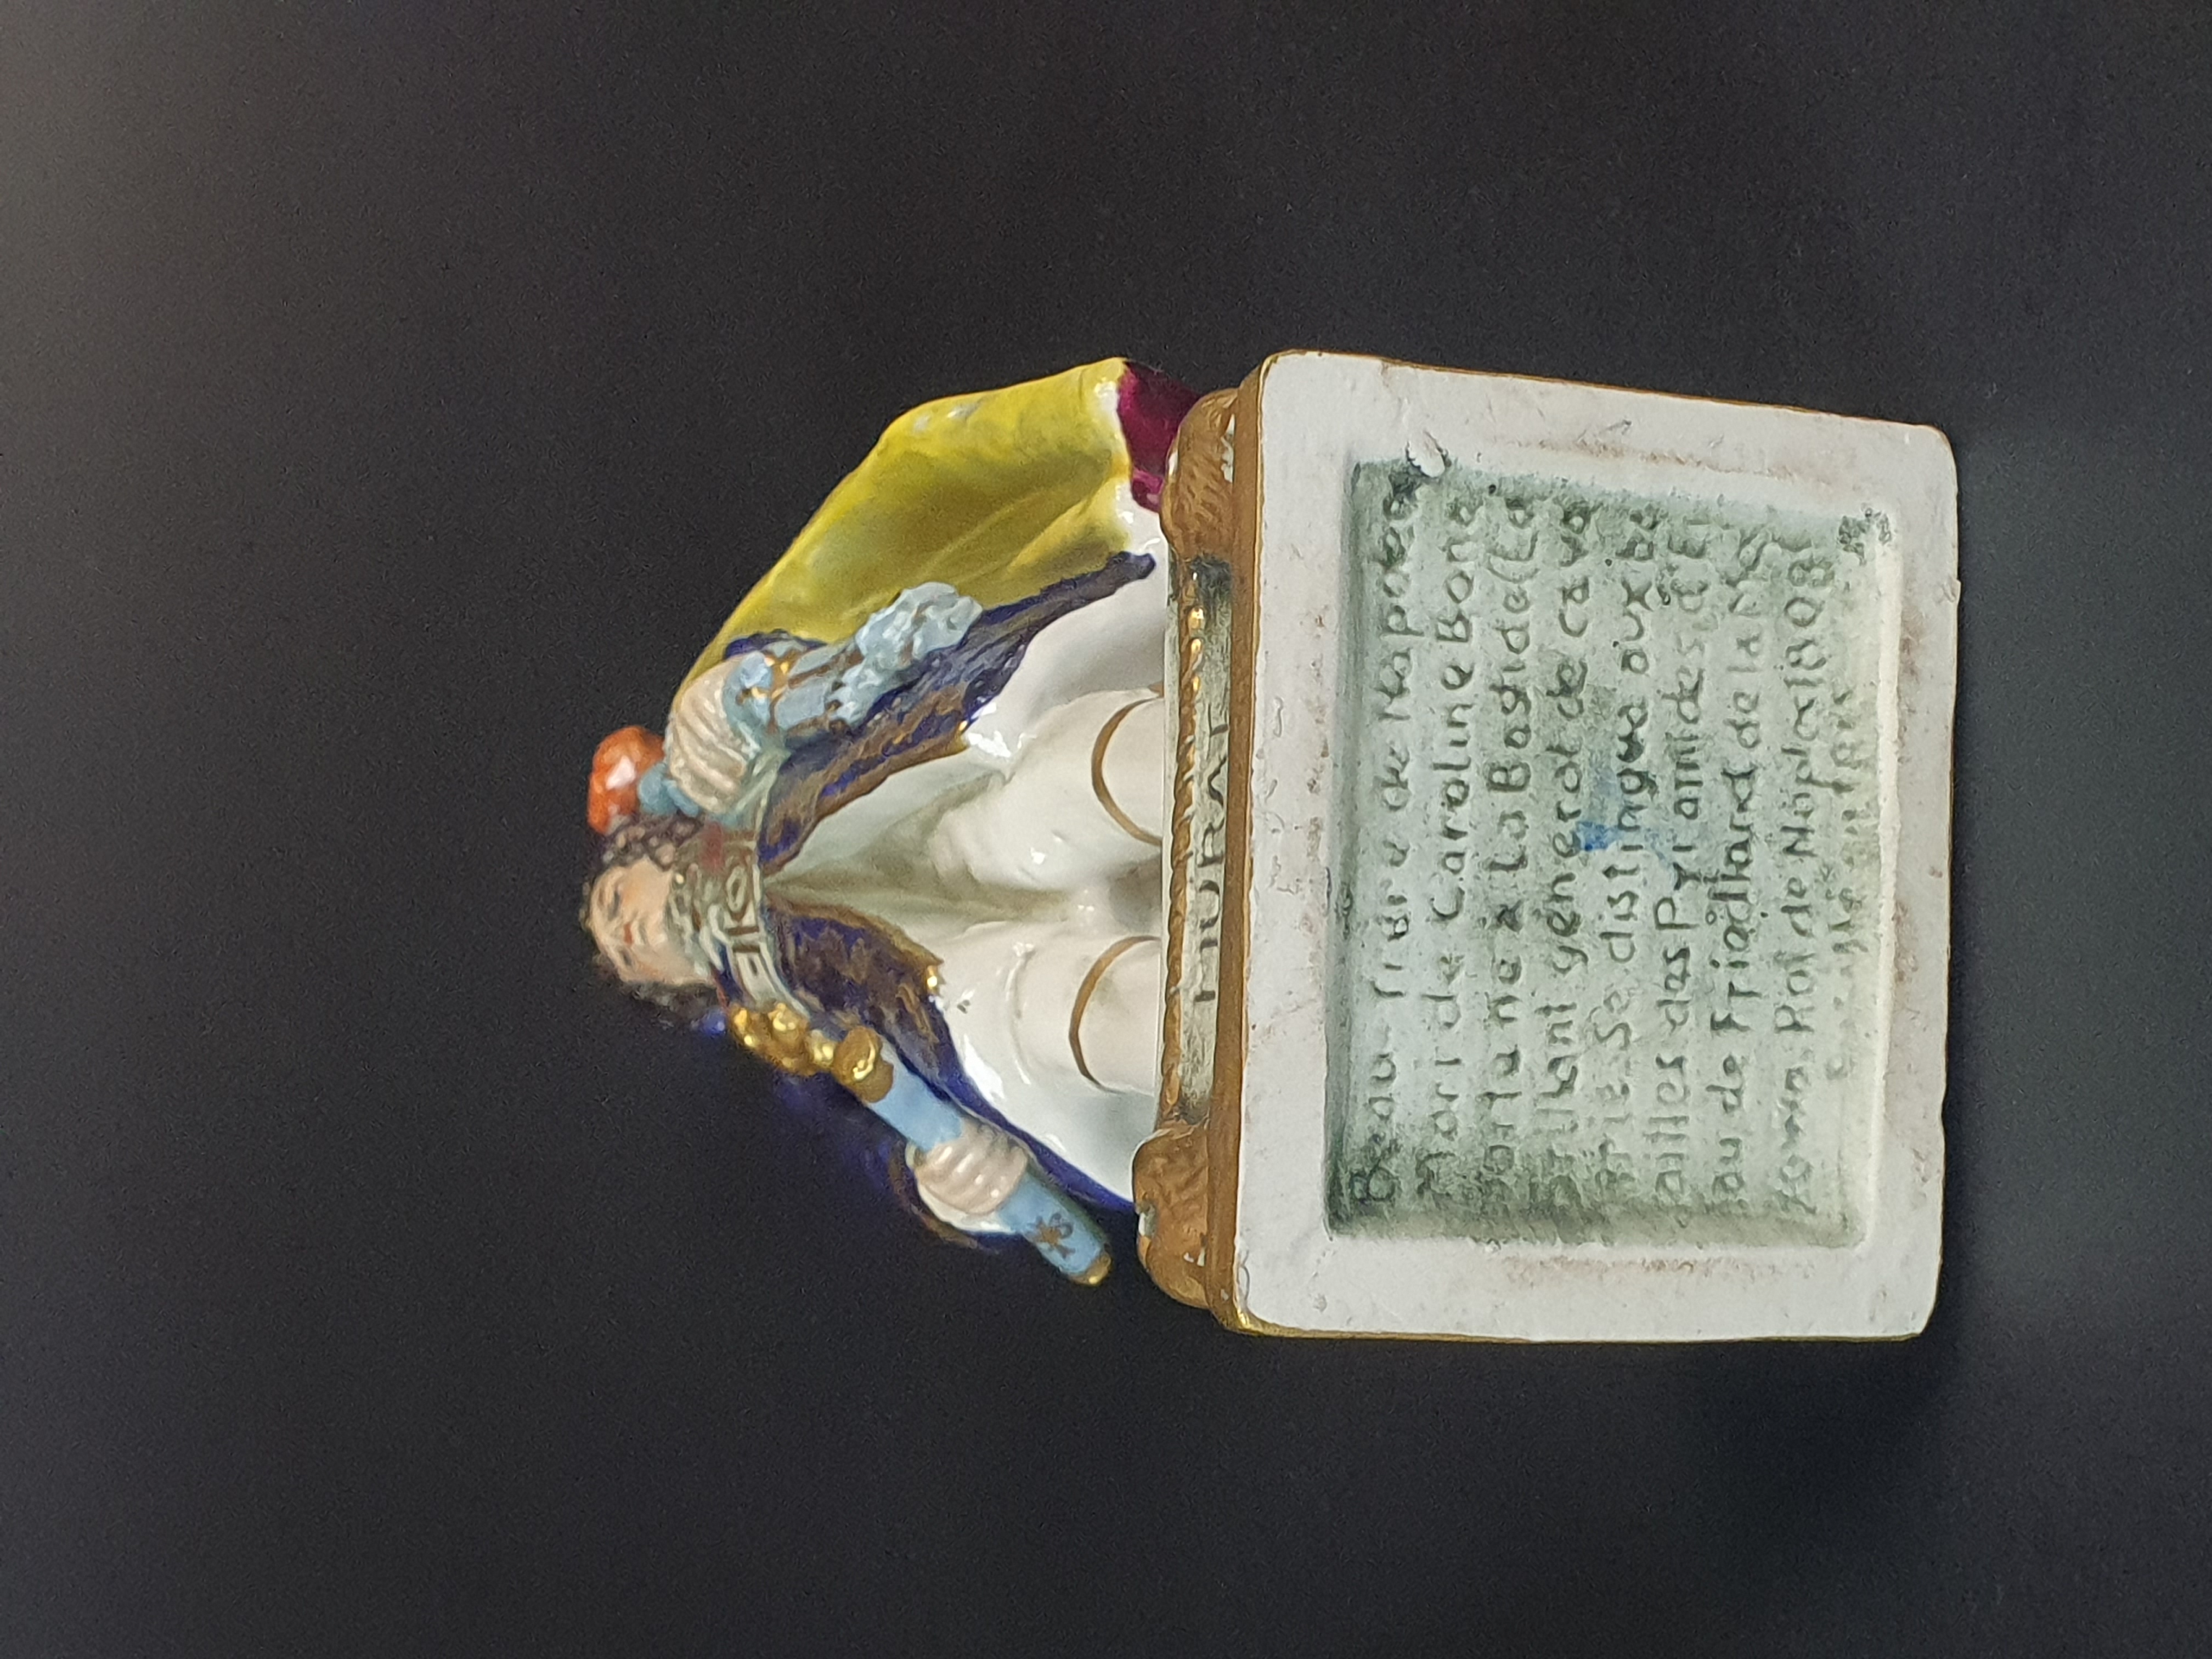 MURAT
Beau frère de Napoléon
Mari de Caroline Bona
parte né à La Bastide(Lo
brillant général de cava
lerie. Se distingua aux ba
ailles des Pyramides, d'El
lau de Friedland de la Mos
kowa. Roi de Naples(1808)